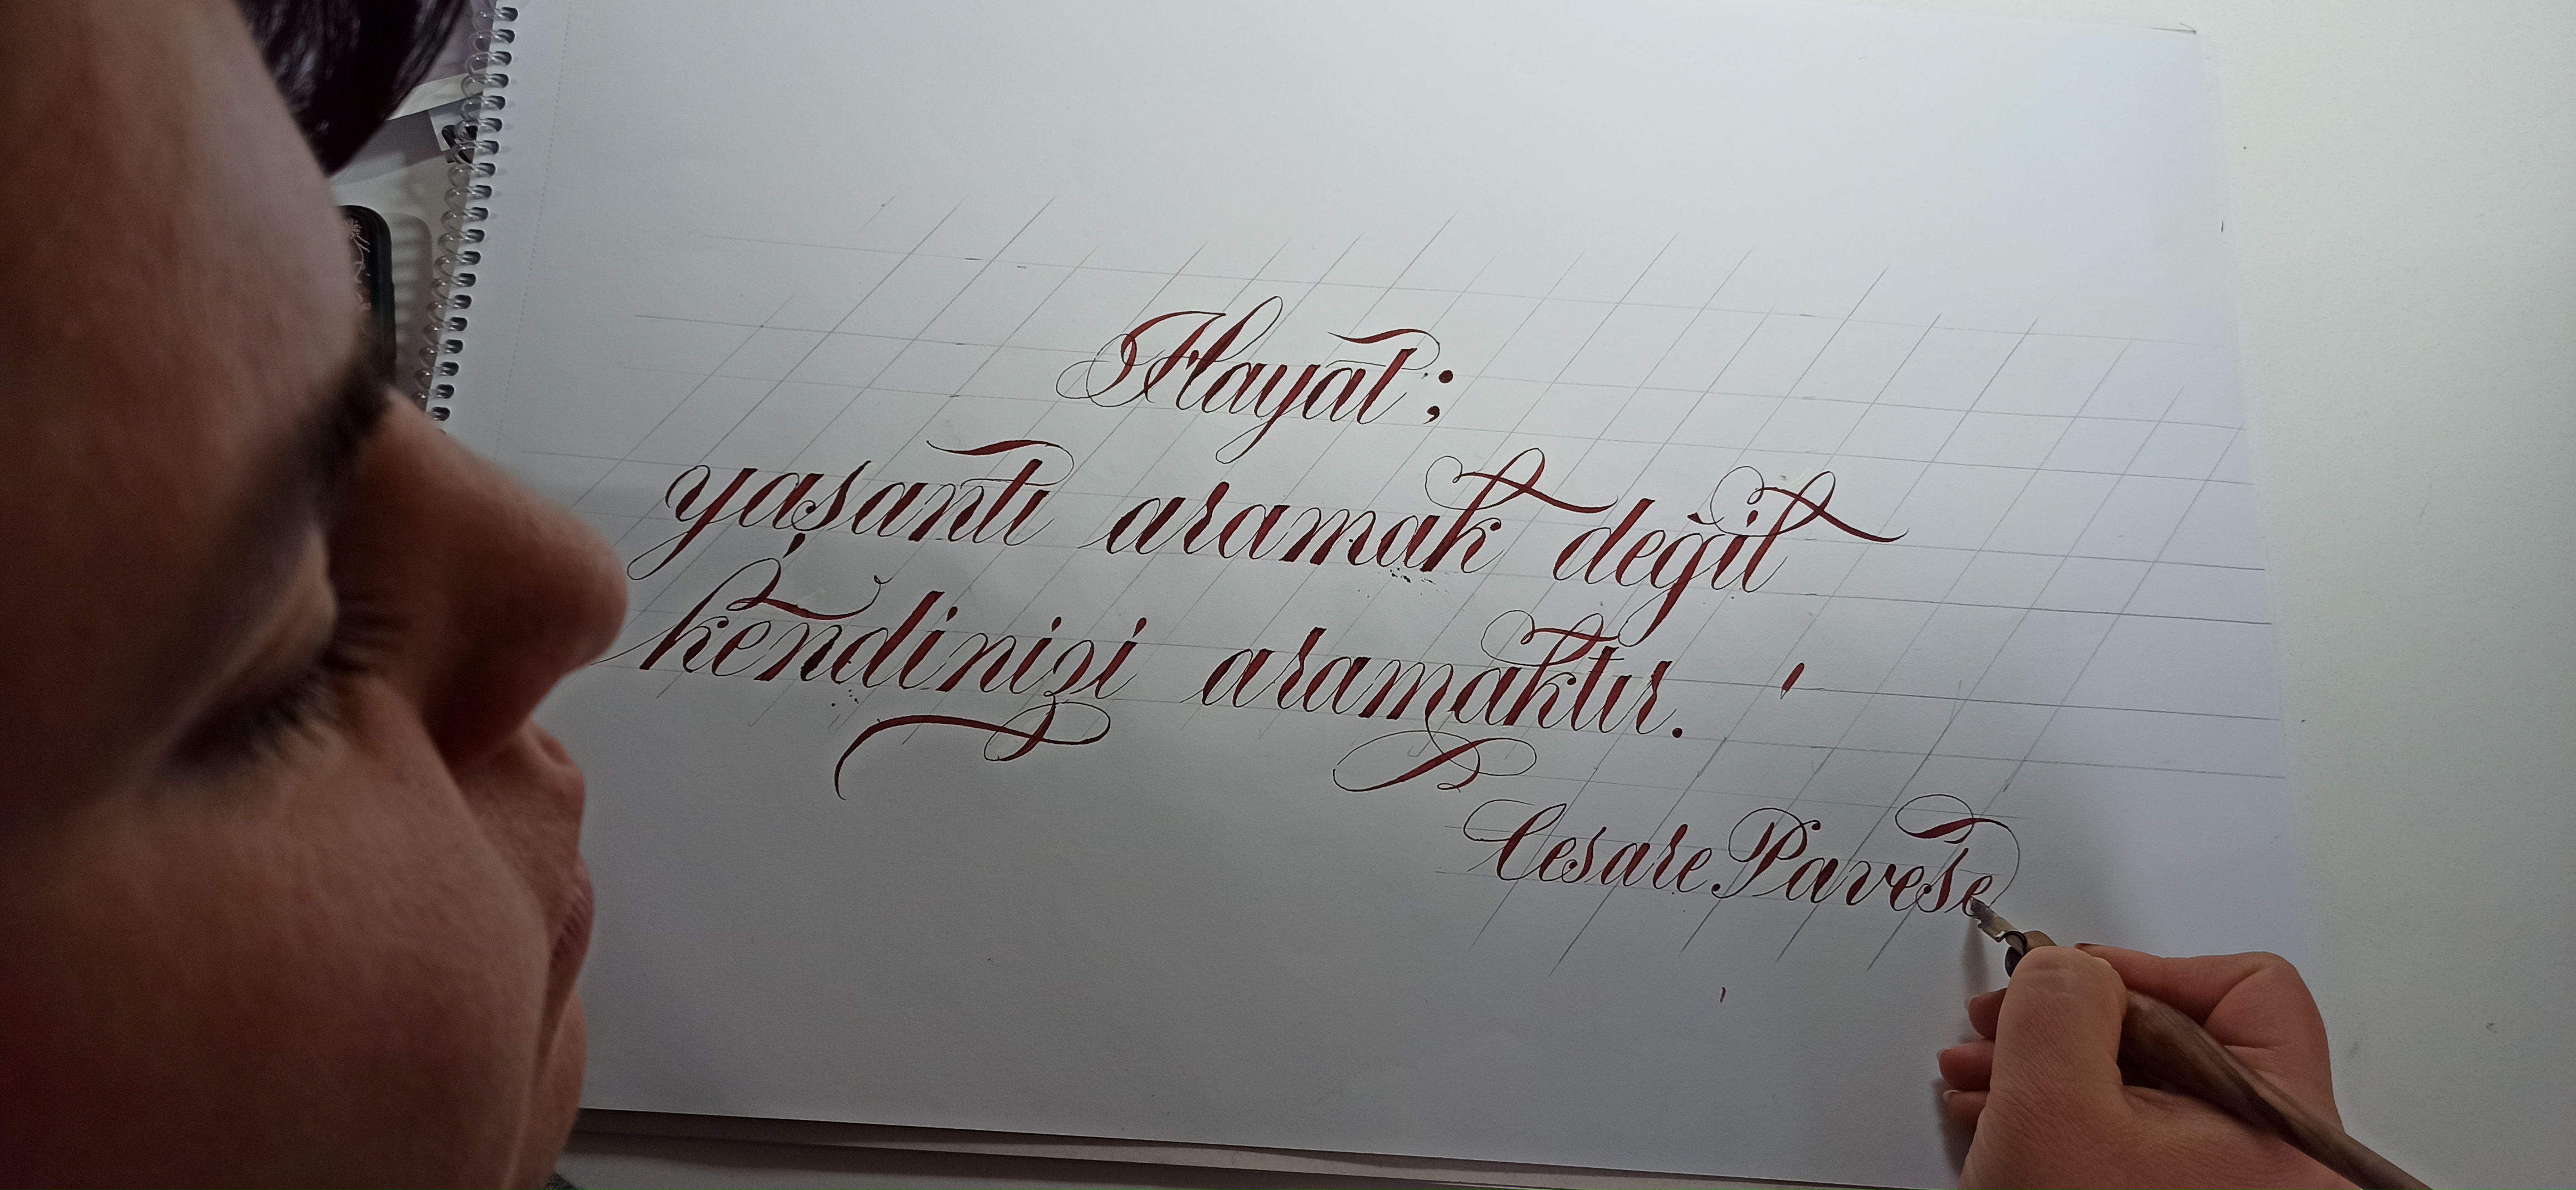 Hayat ;
yaşantı aramak değil
kendinizi aramaktır.
Cesare Pavese